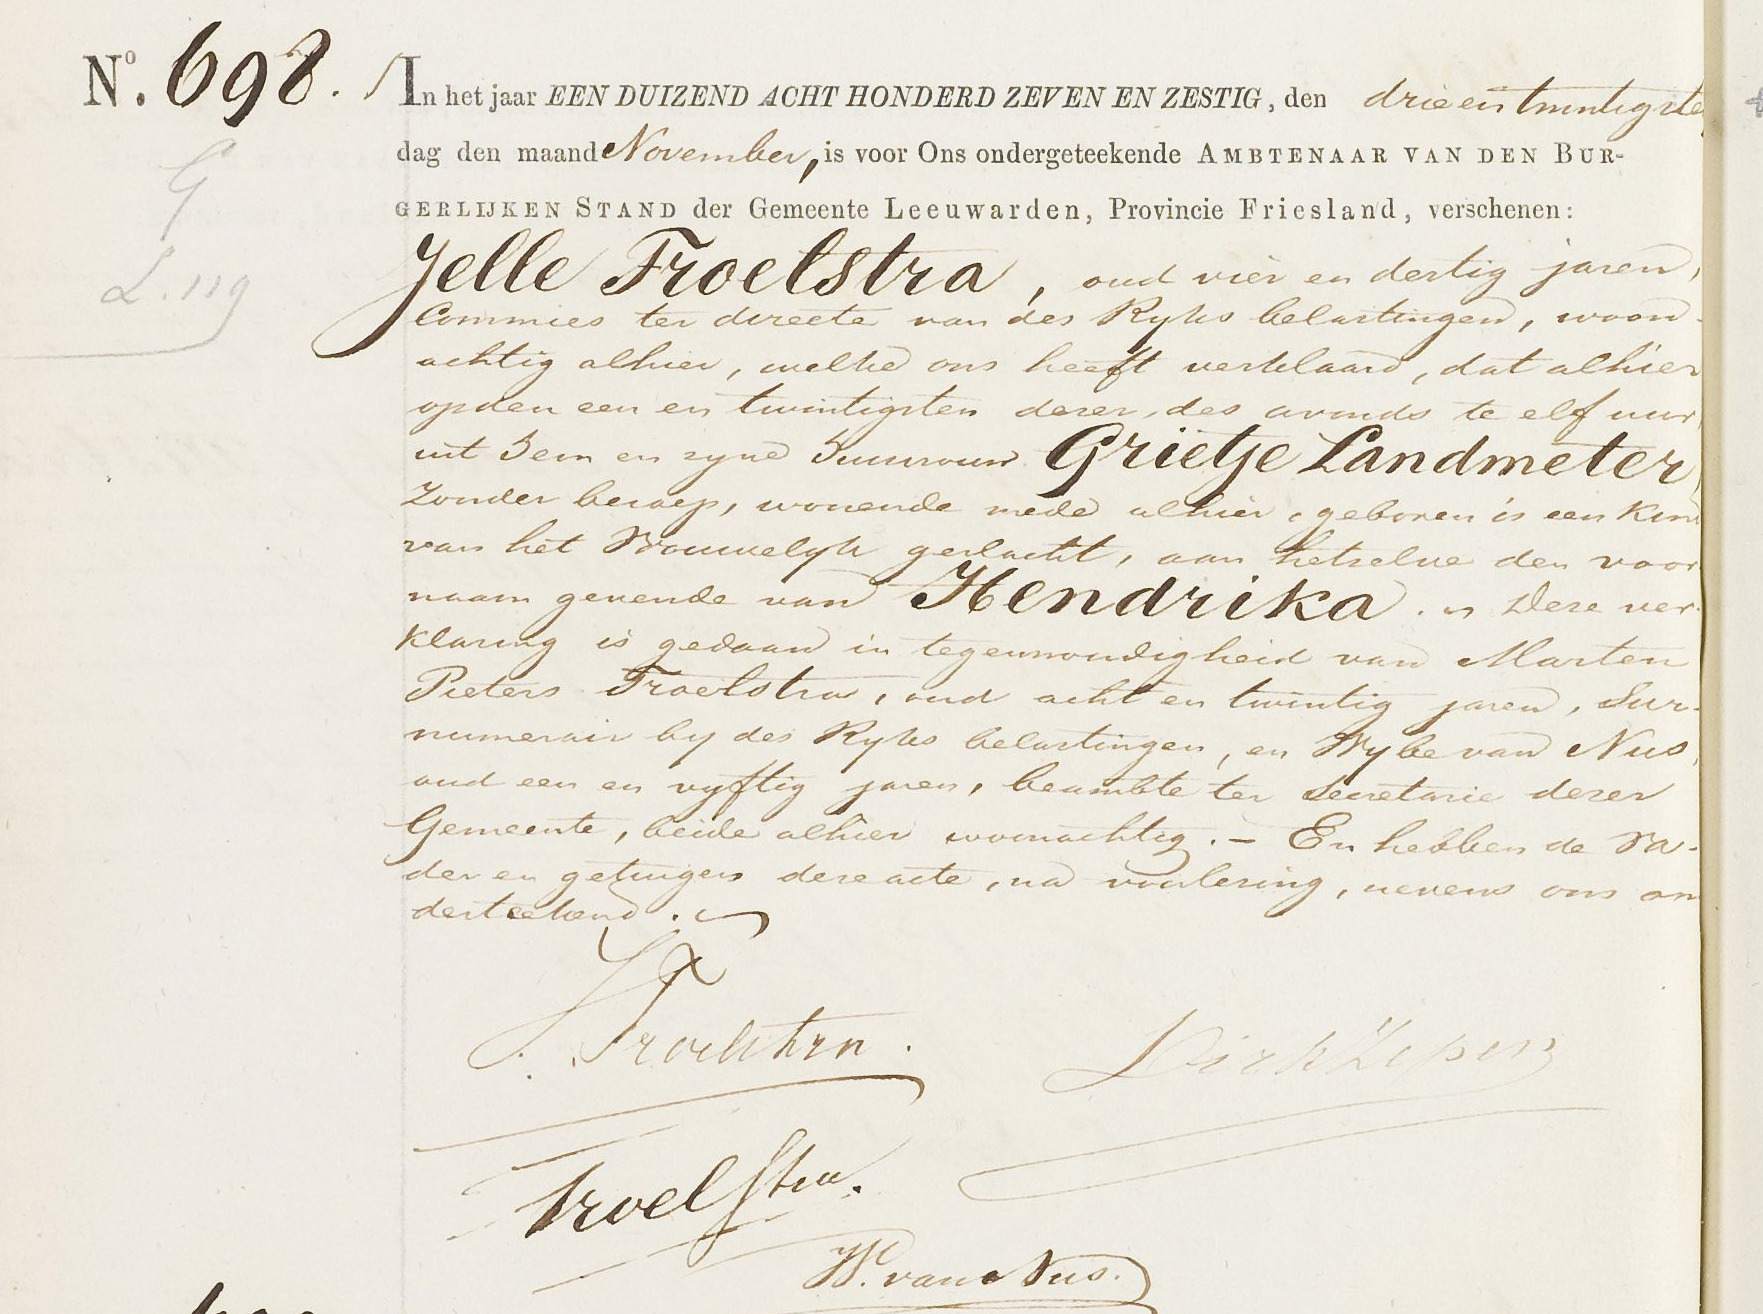 No. 698. In het jaar EEN DUIZEND ACHT HONDERD ZEVEN EN ZESTIG, den drie en twintigste
G
L. 119
dag den maand November, is voor Ons ondergeteekende AMBTENAAR VAN DEN BUR-
GERLIJKEN STAND der Gemeente Leeuwarden, Provincie Friesland, verschenen:
Jelle Troelstra, oud vier en dertig jaren,
Commies ter directe van des Ryks belastingen, woon-
achtig alhier, welke ons heeft verklaard, dat alhier
op den een en twintigsten dezer, des avonds te elf uur,
uit hem en zyne huisvrouw Grietje Landmeter,
zonder beroep, wonende mede alhier, geboren is een kind
van het Vrouwelyk geslacht, aan hetzelve den voor
naam gevende van Hendrika. Deze ver-
klaring is gedaan in tegenwoordigheid van Marten
Pieters Troelstra, oud acht en twintig jaren, Sur-
numerair by des Ryks belastingen, en Wybe van Nus,
oud een en vyftig jaren, beambte ter Secretarie dezer
Gemeente, beide alhier woonachtig. — En hebben de va-
der en getuigen deze acte, na voorlezing, nevens ons on
derteekend.
J Troelstra.
Dirk Zeper
Troelstra.
W. van Nus.